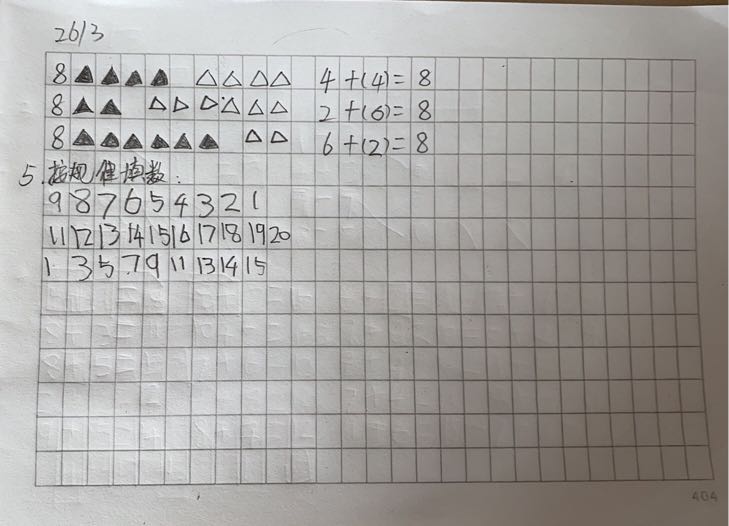 26/3
8▲▲▲▲ △△△△ 4+(4)=8
8▲▲ △△△△△△ 2+(6)=8
8▲▲▲▲▲▲ △△ 6+(2)=8
5.按规律填数:
9 8 7 6 5 4 3 2 1
11 12 13 14 15 16 17 18 19 20
1 3 5 7 9 11 13 14 15
464